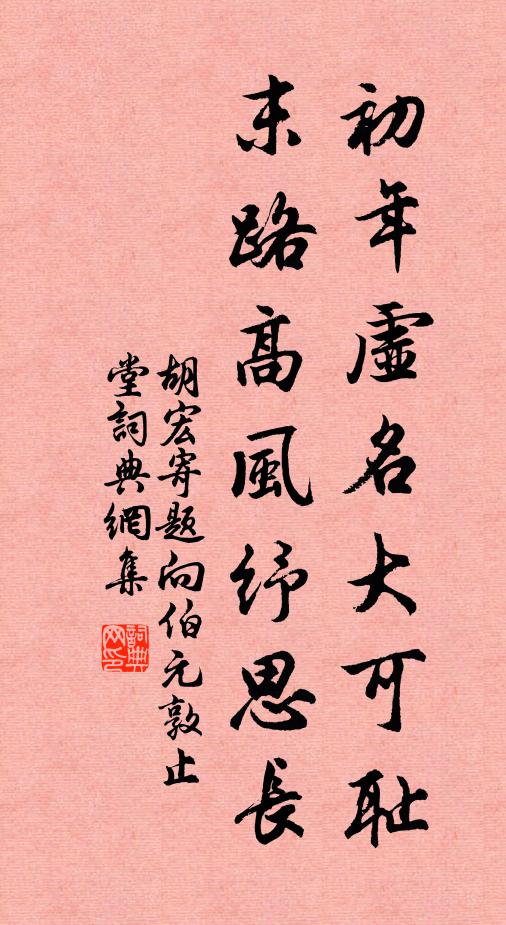 初年虛名大可耻
末路高風紓思長
胡宏寄题向伯元敦止
堂詞典網集
詞典網印